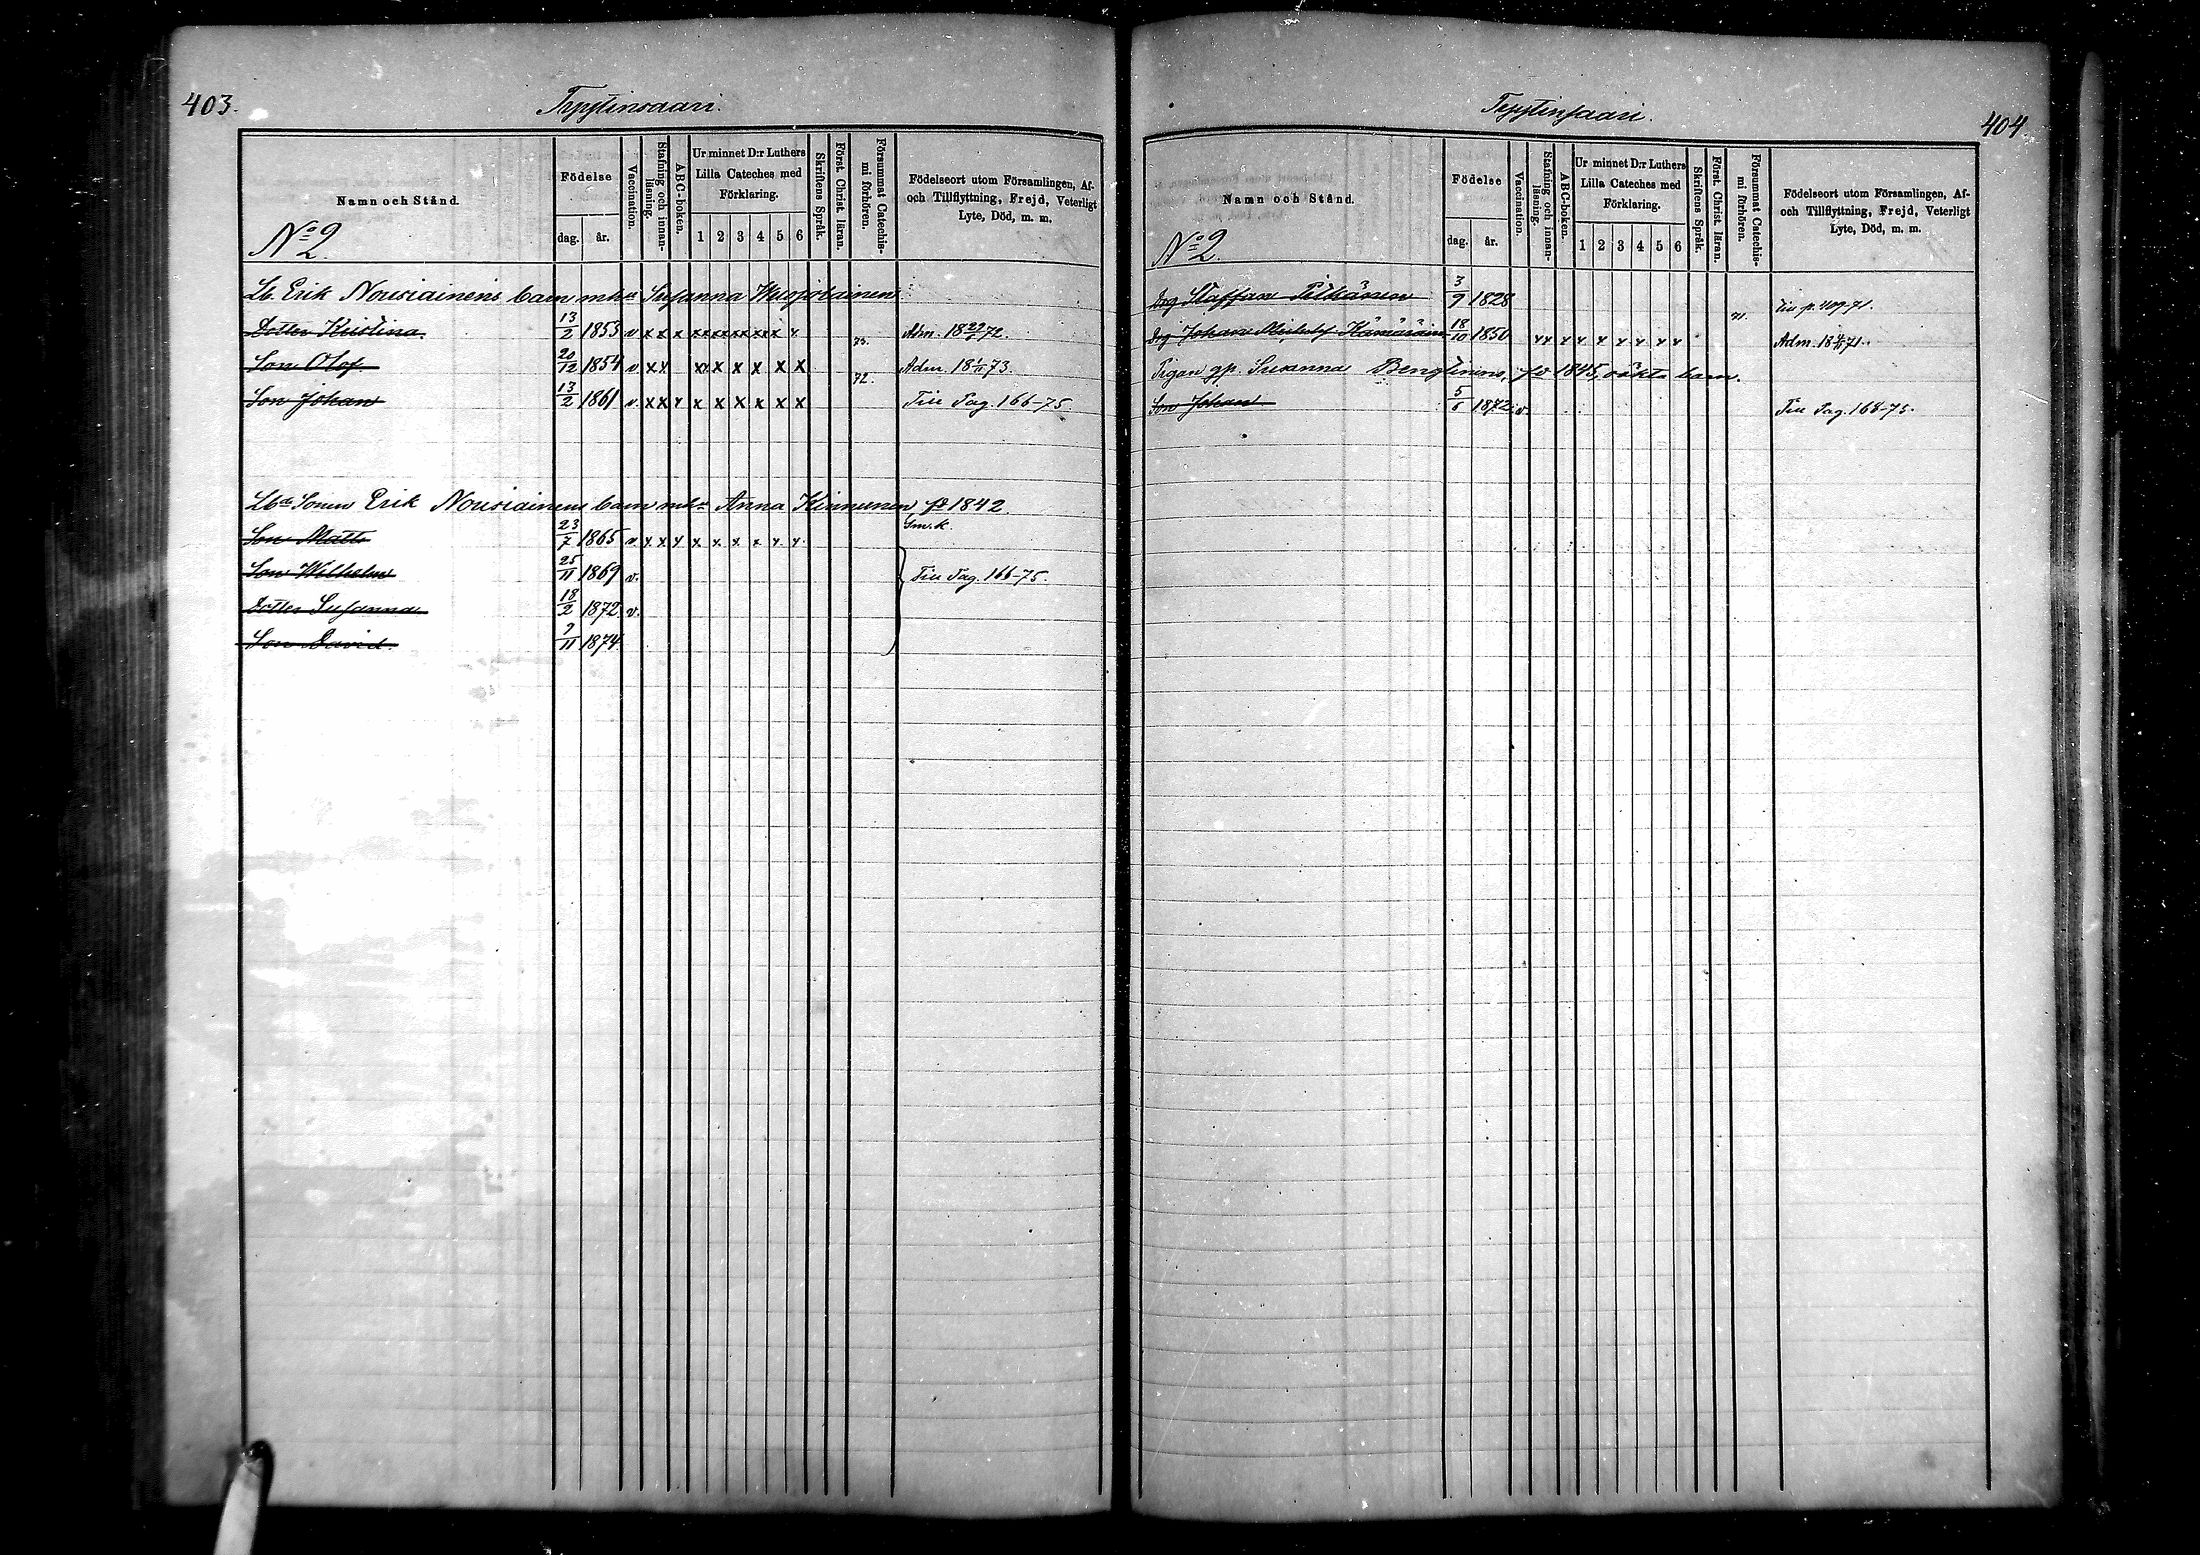 403.
Tryytinsaari.
Namn och Stånd.
Födelse
dag.
år.
Vaccination.
Stafning och innan-läsning.
ABC-boken.
Ur minnet D:r Luthers
Lilla Cateches med
Förklaring.
1 2 3 4 5 6
Skriftens Språk.
Först. Christ. läran.
Försummat Catechis-mi förhören.
Födelseort utom Församlingen, Af-
och Tillflyttning, Frejd, Veterligt
Lyte, Död, m. m.
No 2.
Lb. Erik Nousiainens barn mhu Susanna
Dotter Kristina. 13/2 1853 v x x x x x x x x x 73. Adm. 18 22/9 72.
Son Olof. 20/12 1854 v x x x x x x x x 72. Adm. 18 1/11 73.
Son Johan 13/2 1861 v. x x x x x x x x x Till Pag. 166-75.
Lbde Sonen Erik Nousiainens barn mhu Anna Kinnunen fd 1842
Son Matts 23/7 1865 v x x x x x x x x x Sm. k.
Son Wilhelm 25/11 1869 v. Till Pag. 166-75.
Dotter Susanna 18/2 1872 v.
Son David. 9/11 1874.
404.
Tryytinsaari.
Namn och Stånd.
Födelse
dag.
år.
Vaccination.
Stafning och innan-läsning.
ABC-boken.
Ur minnet D:r Luthers
Lilla Cateches med
Förklaring.
1 2 3 4 5 6
Skriftens Språk.
Först. Christ. läran.
Försummat Catechis-mi förhören.
Födelseort utom Församlingen, Af-
och Tillflyttning, Frejd, Veterligt
Lyte, Död, m. m.
No 2.
Drg Staffan Pitkänen 3/9 1828 71. Till p. 209-71.
Drg Johan Michelsf Hämäläinen 18/10 1850 x x x x x x x x x Adm. 71.
Pigan gp. Susanna fd 1845, oäkta barn.
Son Johan 5/6 1872 v. Till Pag. 168-75.